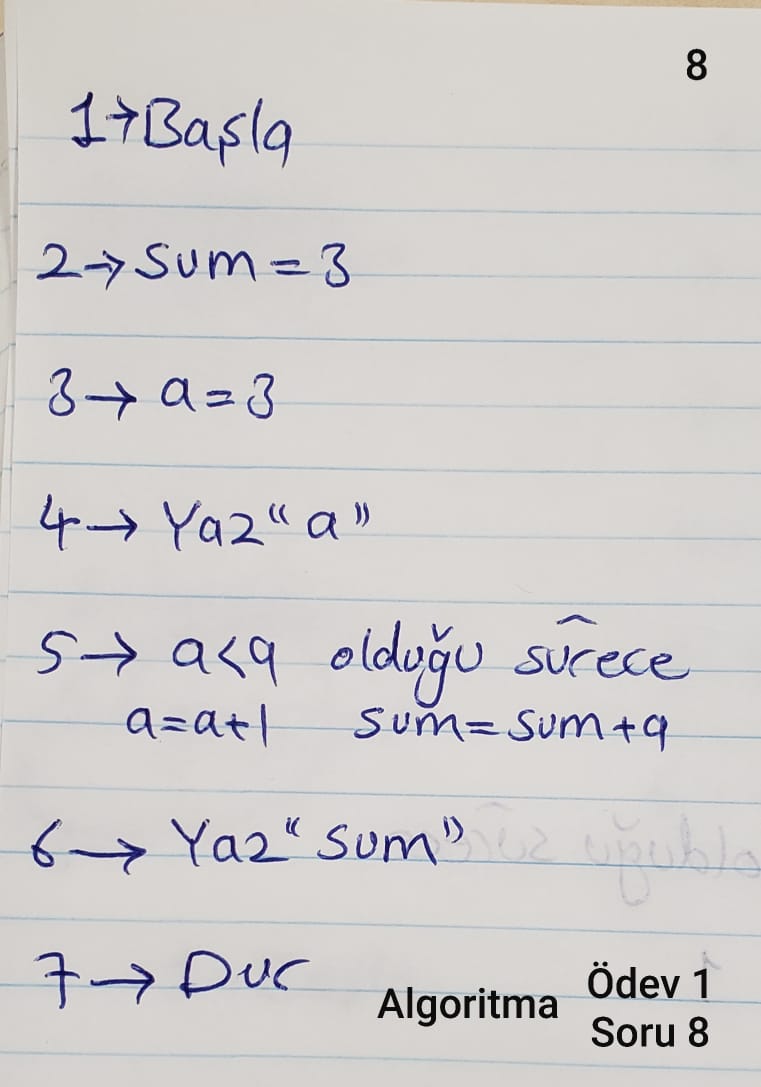 8
1→Başla
2→ Sum = 3
3→ a = 3
4→ Yaz “ a ”
5→ a<9 olduğu sûrece
a=a+1 sum=sum+a
6→ Yaz “ sum ”
7→ Dur
Algoritma Ödev 1
Soru 8